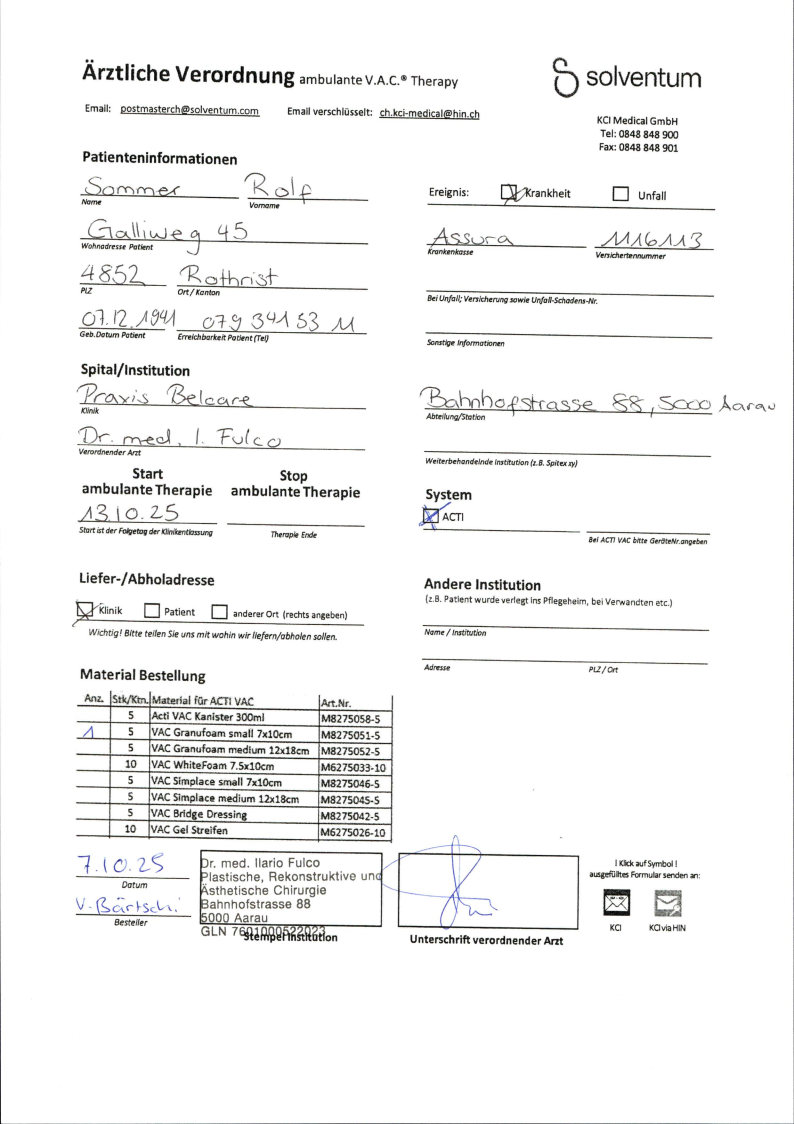 Ärztliche Verordnung ambulante V.A.C.® Therapy
solventum
Email: postmasterch@solventum.com Email verschlüsselt: ch.kci-medical@hin.ch
KCI Medical GmbH
Tel: 0848 848 900
Fax: 0848 848 901
Patienteninformationen
Sommer Rolf
Name Vorname
Ereignis: Krankheit Unfall
Galliweg 45
Wohnadresse Patient
Assura 1116113
Krankenkasse Versichertennummer
4852 Rothrist
PLZ Ort / Kanton
Bei Unfall; Versicherung sowie Unfall-Schadens-Nr.
07.12.1941 079 341 53 11
Geb.Datum Patient Erreichbarkeit Patient (Tel)
Sonstige Informationen
Spital/Institution
Praxis Belcare
Klinik
Bahnhofstrasse 88, 5000 Aarau
Abteilung/Station
Dr. med. I. Fulco
Verordnender Arzt
Weiterbehandelnde Institution (z.B. Spitex xy)
Start ambulante Therapie
Stop ambulante Therapie
13.10.25
Start ist der Folgetag der Klinikentlassung
Therapie Ende
System
ACTI
Bei ACTI VAC bitte GeräteNr.angeben
Liefer-/Abholadresse
Klinik Patient anderer Ort (rechts angeben)
Wichtig! Bitte teilen Sie uns mit wohin wir liefern/abholen sollen.
Andere Institution
(z.B. Patient wurde verlegt ins Pflegeheim, bei Verwandten etc.)
Name / Institution
Adresse PLZ / Ort
Material Bestellung
Anz. Stk/Ktn. Material für ACTI VAC Art.Nr.
5 Acti VAC Kanister 300ml M8275058-5
1 5 VAC Granufoam small 7x10cm M8275051-5
5 VAC Granufoam medium 12x18cm M8275052-5
10 VAC WhiteFoam 7.5x10cm M6275033-10
5 VAC Simplace small 7x10cm M8275046-5
5 VAC Simplace medium 12x18cm M8275045-5
5 VAC Bridge Dressing M8275042-5
10 VAC Gel Streifen M6275026-10
7.10.25
Datum
V. Bärtschi
Besteller
Dr. med. Ilario Fulco
Plastische, Rekonstruktive und
Ästhetische Chirurgie
Bahnhofstrasse 88
5000 Aarau
GLN 7601000522023
Stempel Institution
Unterschrift verordnender Arzt
! Klick auf Symbol !
ausgefülltes Formular senden an:
KCI KCI via HIN